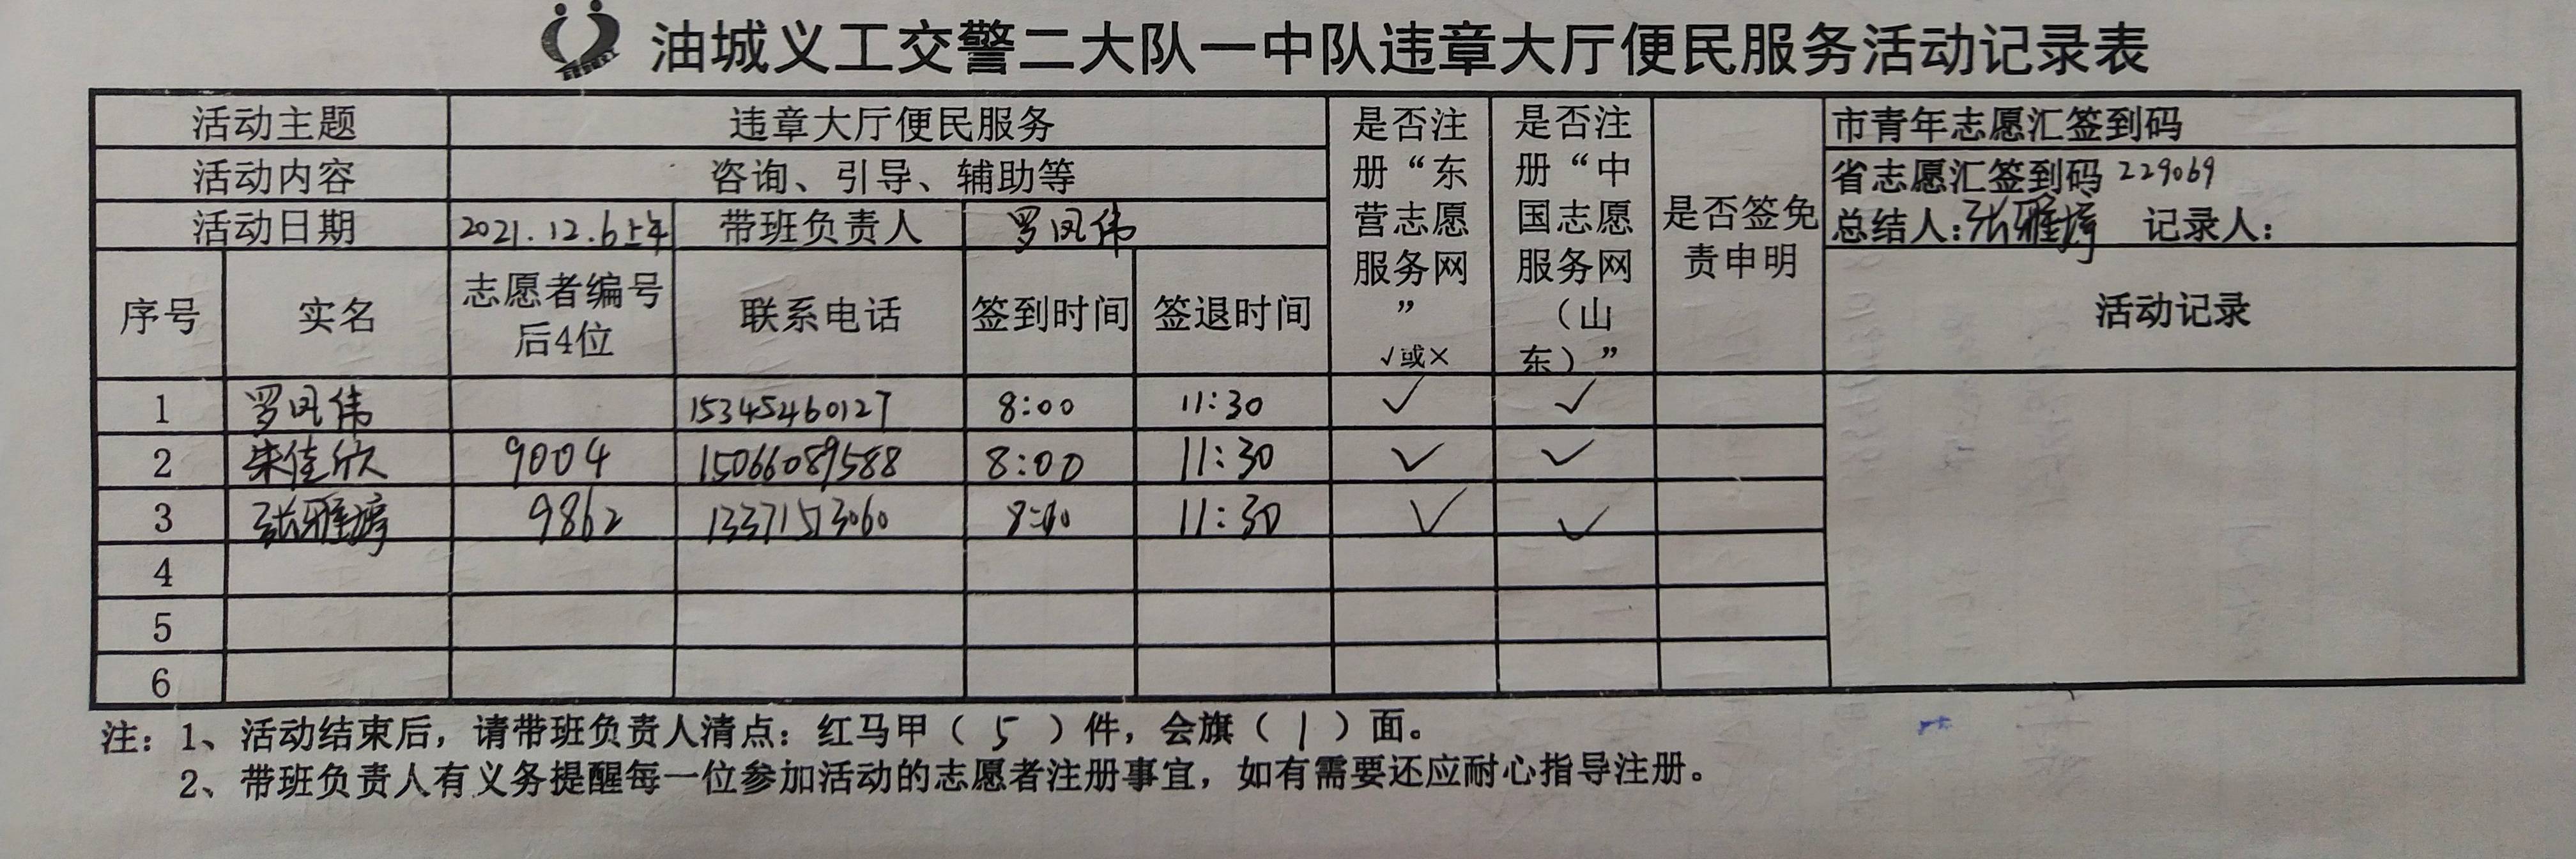 油城义工交警二大队一中队违章大厅便民服务活动记录表
活动主题 违章大厅便民服务
活动内容 咨询、引导、辅助等
活动日期 2021.12.6上午 带班负责人 罗凤伟
是否注册“东营志愿服务网” √或×
是否注册“中国志愿服务网（山东）”
是否签免责申明
市青年志愿汇签到码
省志愿汇签到码 229069
总结人：张雅婷 记录人：
序号 实名 志愿者编号后4位 联系电话 签到时间 签退时间 活动记录
1 罗凤伟 15345460127 8:00 11:30 ✓ ✓
2 朱佳欣 9004 15066089588 8:00 11:30 ✓ ✓
3 张雅婷 9862 13371513060 8:00 11:30 ✓ ✓
4
5
6
注：1、活动结束后，请带班负责人清点：红马甲（ 5 ）件，会旗（ 1 ）面。
2、带班负责人有义务提醒每一位参加活动的志愿者注册事宜，如有需要还应耐心指导注册。